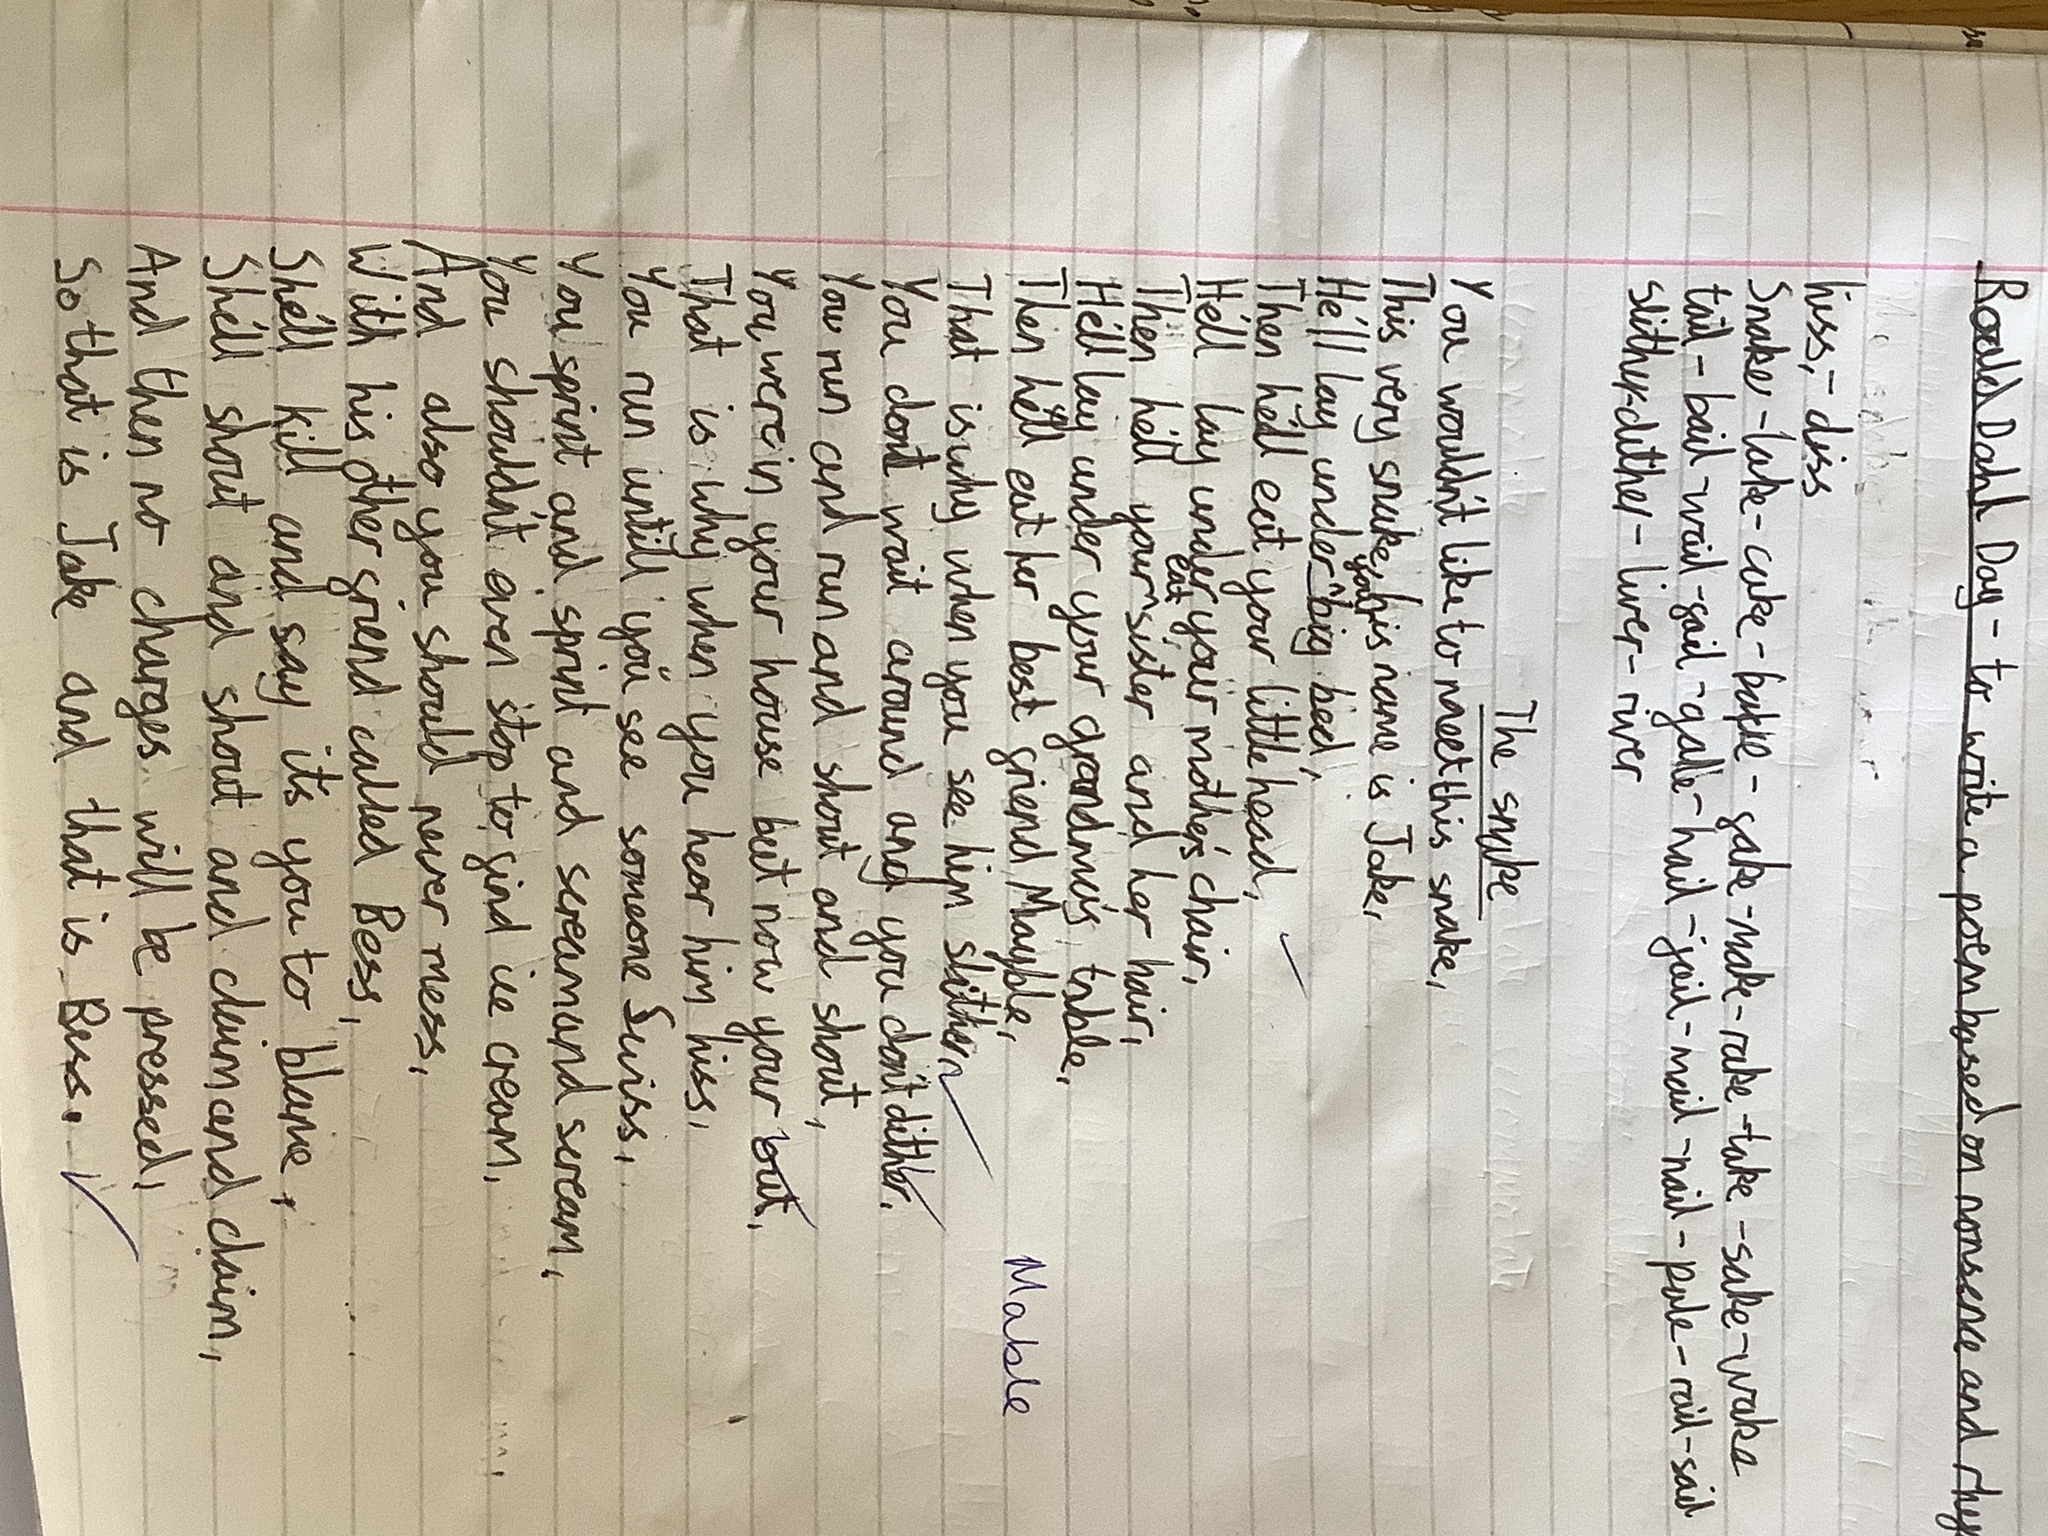 Roald Dahl Day - to write a poem based on nonsence and rhy
hiss, - diss
Snake - lake - cake - bake - fake - make - rake - take - sake - wake
tail - bail - wail - fail - gale - hail - jail - mail - nail - pale - rail - sail
slither - dither - liver - river
The snake
You wouldn't like to meet this snake,
This very snake, his name is Jake,
He'll lay under ^ your big bed,
Then he'll eat your little head,
He'll lay under your mother's chair,
Then he'll ^ eat your sister and her hair,
He'll lay under your grandma's table,
Then he'll eat her best friend Mayble,
Mable
That is why when you see him slither,
You don't wait around and you don't dither.
You run and run and shout and shout,
You were in your house but now your out,
That is why when you hear him hiss,
You run untill you see someone Swiss,
You sprint and sprint and scream and scream,
You shouldn't even stop to find ice cream,
And also you should never mess,
With his other friend called Bess,
She'll kill and say it's you to blame,
She'll shout and shout and claim and claim,
And then no charges will be pressed,
So that is Jake and that is Bess.